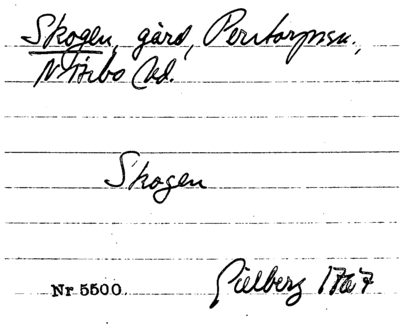 Skogen, gård, Pentorpssn.,
N Tisbo hd.
Skogen
Nr 5500 Gielberg 1767